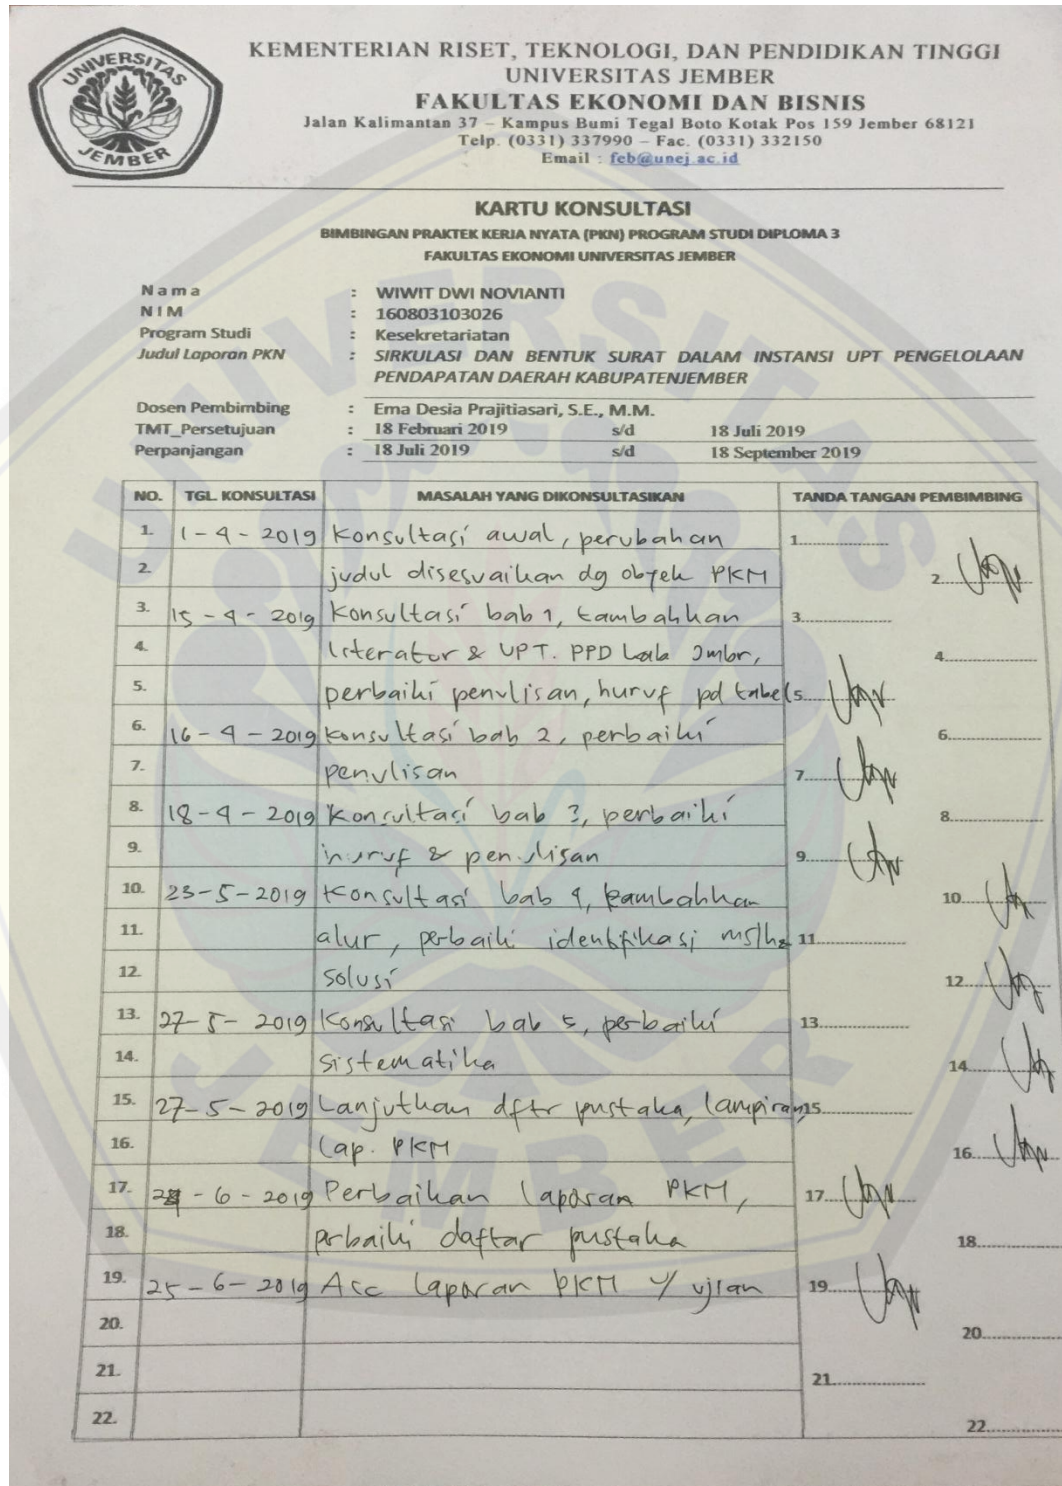 UNIVERSITAS
JEMBER
KEMENTERIAN RISET, TEKNOLOGI, DAN PENDIDIKAN TINGGI
UNIVERSITAS JEMBER
FAKULTAS EKONOMI DAN BISNIS
Jalan Kalimantan 37 – Kampus Bumi Tegal Boto Kotak Pos 159 Jember 68121
Telp. (0331) 337990 – Fac. (0331) 332150
Email : feb@unej.ac.id
KARTU KONSULTASI
BIMBINGAN PRAKTEK KERJA NYATA (PKN) PROGRAM STUDI DIPLOMA 3
FAKULTAS EKONOMI UNIVERSITAS JEMBER
Nama : WIWIT DWI NOVIANTI
NIM : 160803103026
Program Studi : Kesekretariatan
Judul Laporan PKN : SIRKULASI DAN BENTUK SURAT DALAM INSTANSI UPT PENGELOLAAN
PENDAPATAN DAERAH KABUPATENJEMBER
Dosen Pembimbing : Ema Desia Prajitiasari, S.E., M.M.
TMT_Persetujuan : 18 Februari 2019 s/d 18 Juli 2019
Perpanjangan : 18 Juli 2019 s/d 18 September 2019
NO. TGL. KONSULTASI MASALAH YANG DIKONSULTASIKAN TANDA TANGAN PEMBIMBING
1. 1-4-2019 Konsultasi awal, perubahan 1
2. judul disesuaikan dg obyek PKM 2
3. 15-4-2019 Konsultasi bab 1, tambahkan 3
4. & UPT. PPD Jmbr, 4
5. perbaiki penulisan, huruf pd tabel 5
6. 16-4-2019 Konsultasi bab 2, perbaiki 6
7. penulisan 7
8. 18-4-2019 Konsultasi bab 3, perbaiki 8
9. huruf & penulisan 9
10. 23-5-2019 Konsultasi bab 4, tambahkan 10
11. alur, perbaiki identifikasi 11
12. solusi 12
13. 27-5-2019 Konsultasi bab 5, perbaiki 13
14. sistematika 14
15. 27-5-2019 Lanjutkan dftr pustaka, lampiran, 15
16. Lap. PKM 16
17. -6-2019 Perbaikan laporan PKM, 17
18. prbaiki daftar pustaka 18
19. 25-6-2019 Acc laporan PKM u/ ujian 19
20. 20
21. 21
22. 22